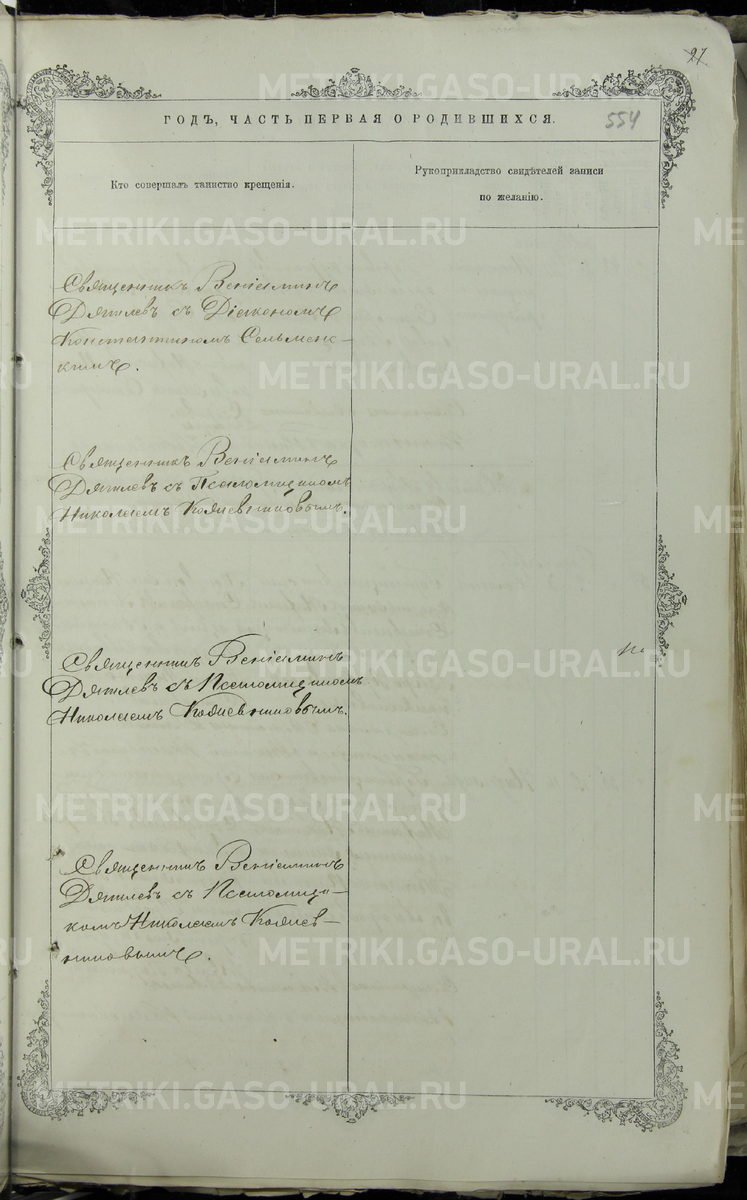 27
ГОДЪ, ЧАСТЬ ПЕРВАЯ О РОДИВШИХСЯ.
554
Кто совершалъ таинство крещенія.
Рукоприкладство свидѣтелей записи
по желанію.
Священникъ Веніаминъ
Дягилевъ съ Діакономъ
Константиномъ Сельменс-
кимъ.
Священникъ Веніаминъ
Дягилевъ съ Псаломщикомъ
Николаемъ
Священникъ Веніаминъ
Дягилевъ съ Псаломщикомъ
Николаемъ
Священникъ Веніаминъ
Дягилевъ съ Псаломщи-
комъ Николаемъ
METRIKI.GASO-URAL.RU